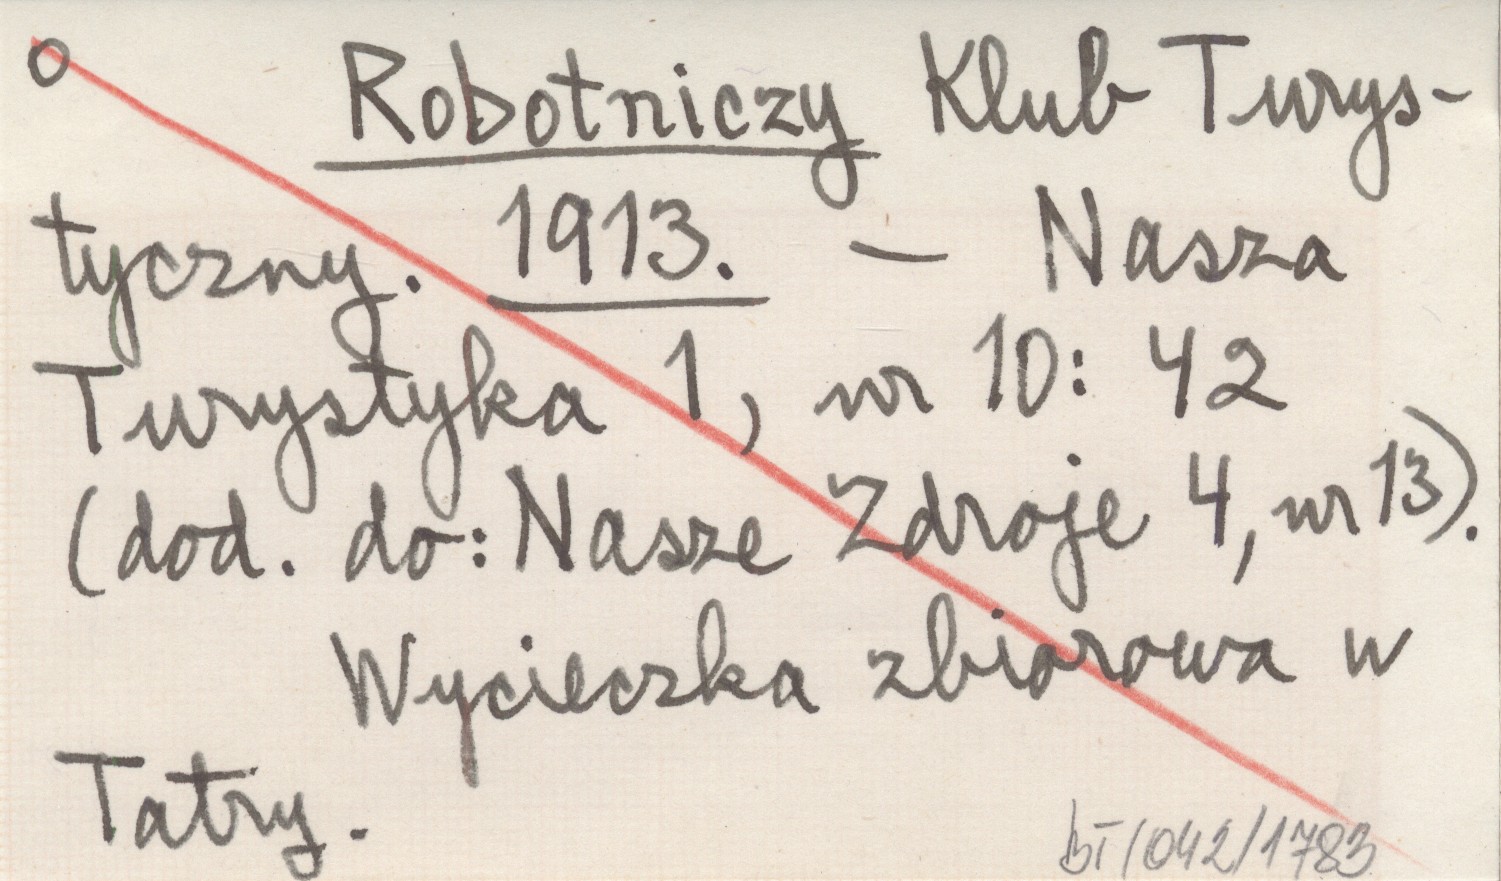 o Robotniczy Klub Turys-
tyczny. 1913. – Nasza
Turystyka 1, nr 10: 42
(dod. do: Nasze Zdroje 4, nr 13).
Wycieczka zbiorowa w
Tatry.
BT/042/1783